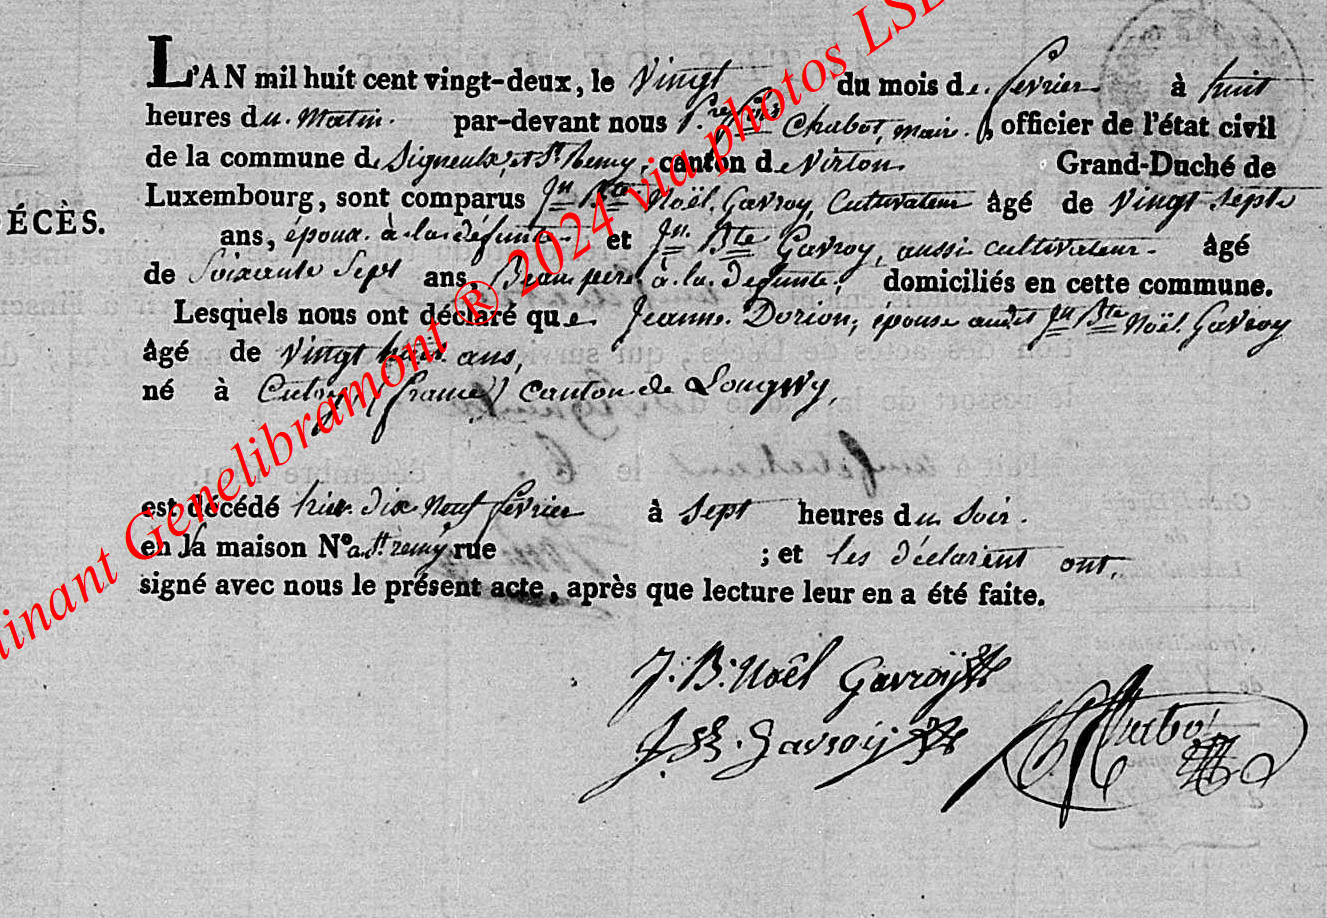 L'AN mil huit cent vingt-deux, le Vingt du mois de fevrier à huit
heures du Matin. par-devant nous Chabot, maire, officier de l'état civil
de la commune de Signeulx, et St. Remy, canton de Virton Grand-Duché de
DÉCÈS.
Luxembourg, sont comparus Jn. Bte Noël, Gavroy, Cultivateur âgé de Vingt sept
ans, époux à la défunte et Jn. Bte Gavroy, aussi cultivateur âgé
de Soixante Sept ans, Beau pere à la defunte. domiciliés en cette commune.
Lesquels nous ont déclaré que Jeanne Dorion, épouse audit Jn Bte Noël Gavroy
âgé de vingt huit ans,
né à (france) Canton de Longwy,
est décédé hier dix Neuf fevrier à Sept heures du Soir.
en la maison N° a St. remy rue ; et les déclarent ont,
signé avec nous le présent acte, après que lecture leur en a été faite.
J. B. Noël Gavroÿ
J. B. Gavroij
Chabot
inant Genelibramont ® 2024 via photos LSD